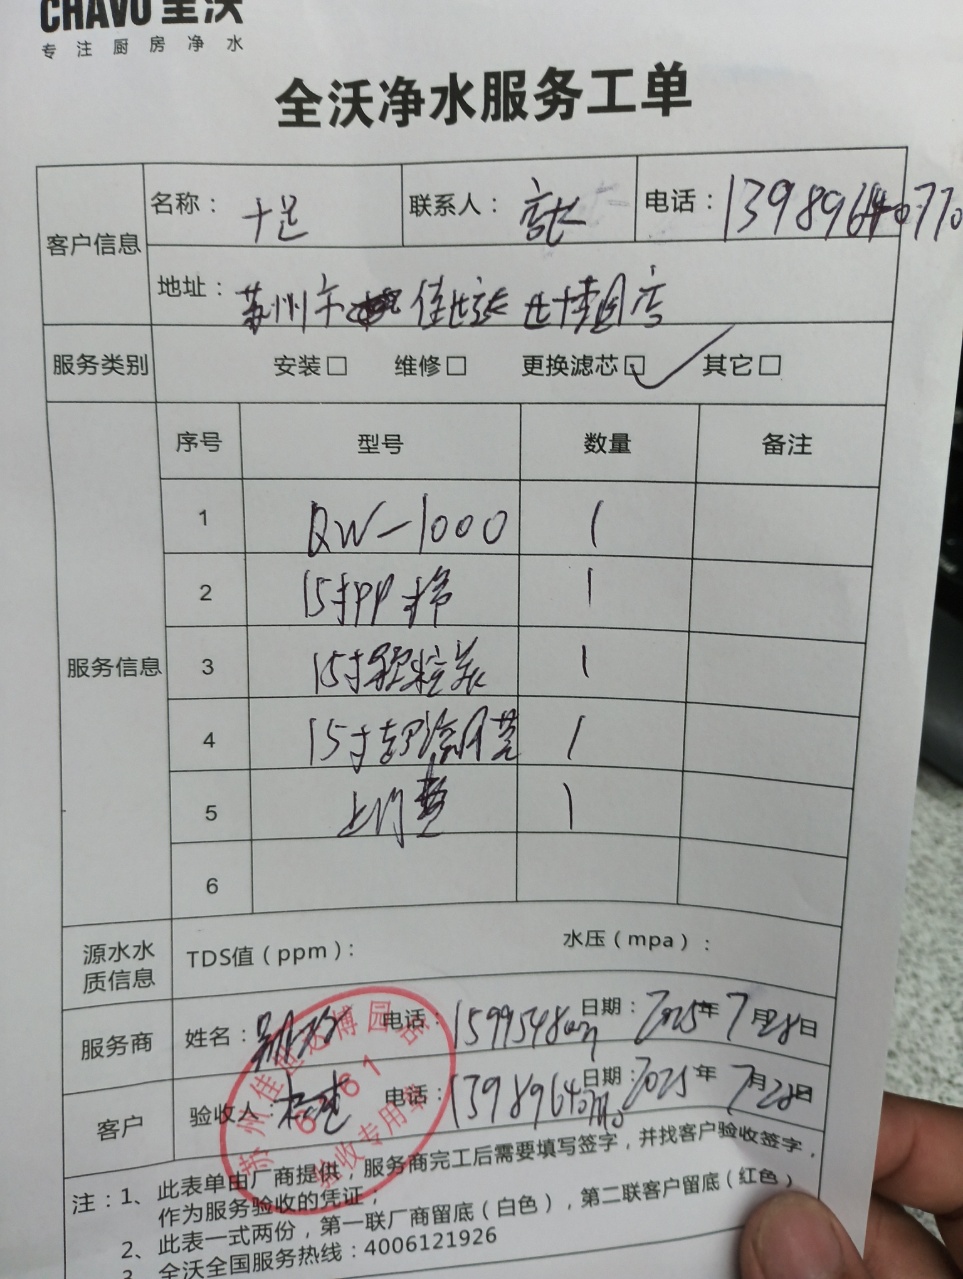 CHAVO 全沃
专注厨房净水
全沃净水服务工单
客户信息 名称：十足 联系人： 电话：
地址：苏州市 佳世达世博园店
服务类别 安装□ 维修□ 更换滤芯□ 其它□
服务信息 序号 型号 数量 备注
1 QW-1000 1
2 15寸PP棉 1
3 15寸颗粒炭 1
4 15寸超滤 1
5 上门费 1
6
源水水质信息 TDS值（ppm）： 水压（mpa）：
服务商 姓名： 电话： 日期：2025年7月28日
客户 验收人： 电话： 日期：2025年7月28日
苏州佳世达博园店
6161
验收专用章
注：1、此表单由厂商提供，服务商完工后需要填写签字，并找客户验收签字，
作为服务验收的凭证；
2、此表一式两份，第一联厂商留底（白色），第二联客户留底（红色）
3、全沃全国服务热线：4006121926